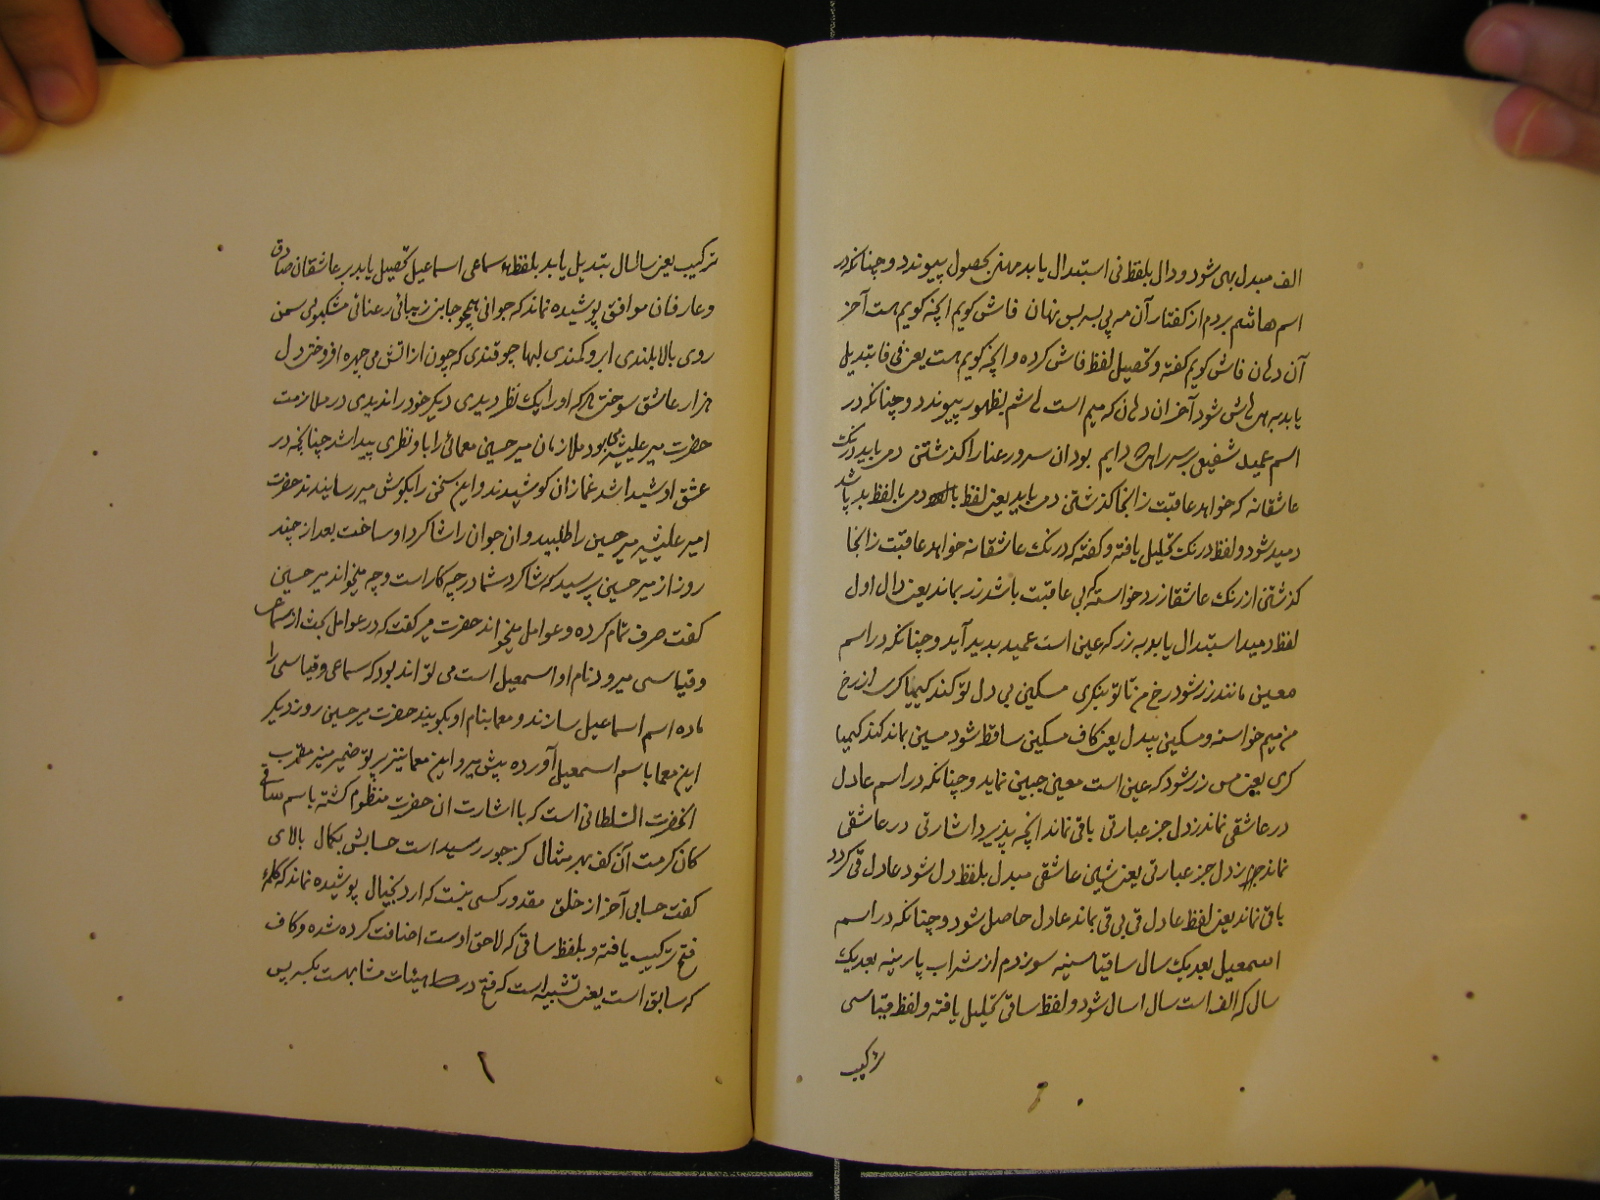 الف مبدل بهی شود و دال بلفظ نی استبدال یابد مهنی بحصول پیوندد و چنانکه در
اسم هاشم بردم از گفتار آن مه پی بسر بس نهان فاش گویم انچه گویم هست آخر
آن دهان فاش گویم گفته و تحصیل لفظ فاش کرده و انچه گویم هست یعنی فی فا بتدیل
یابد به هی هاش شود آخر ان دهان که میم است هاشم بظهور پیوندد و چنانکه در
اسم عمید شفیق بر سر راهی دایم بود ان سرو رعنا را گذشتنی دمی باید درنگ
عاشقانه که خواهد عاقبت زانجا گذشتن دمی باید یعنی لفظ با دمی با لفظ ید باشد
دمید شود و لفظ درنگ تحلیل یافته و گفته که در نگ عاشقانه خواهد عاقبت زانجا
گذشتن از رنگ عاشقانه زرد خواسته که بی عاقبت باشد زر بماند یعنی دال اول
لفظ دمید استبدال یابد به زر که عین است عمید بدید آید و چنانکه در اسم
معین مانند زر شود رخ من تا تو بنگری مسکین بی دل تو کند کیمیاگری از رخ
من میم خواسته و مسکین بیدل یعنی کاف مسکین ساقط شود مسین بماند کند کیمیا
گری یعنی مس زر شود که عین است معین جبین نماید و چنانکه در اسم عادل
در عاشقی نماند ز دل جز عبارتی باقی نماند انچه پذیرد اشارتی در عاشقی
نماند ز دل جز عبارتی یعنی شین عاشقی مبدل بلفظ دل شود عادل قی گردد
باقی نماند یعنی لفظ عادل قی بی قی بماند عادل حاصل شود و چنانکه در اسم
اسمعیل بعد یک سال ساقیا سینه سوزدم از شراب پارینه بعد یک
سال که الف است سال اسال شود و لفظ ساقی تحلیل یافته و لفظ قیاسی
ترکیب
ترکیب یعنی سال اسال بتدیل یابد بلفظ سماعی اسماعیل تحصیل یابد بر عاشقان صادق
و عارفان موافق پوشیده نماند که جوانی همچو جانی زیبائی رعنائی مشکبوئی سمن
روی بالا بلندی ابرو کمندی لبها چو قندی که چون از اتش می چهره افروختی دل
هزار عاشق سوختی هر که او را یک نظر دیدی دیگر خود را ندیدی در ملازمت
حضرت میر علیشیر می بود ملازمان میر حسین معمائی را با و نظری پیدا شد چنانچه در
عشق او شیدا شد غمازان کوشیدند و این سخن را بگوش میر رسایندند حضرت
امیر علیشیر میر حسین را طلبید و ان جوان را شاگرد او ساخت بعد از چند
روز از میر حسین پرسید که شاگرد شما در چه کار است و چه میخواند میر حسین
گفت صرف تمام کرده و عوامل میخواند حضرت میر گفت که در عوامل بحث از سماعی
و قیاسی میرود نام او اسمعیل است می تواند بود که سماعی و قیاسی را
ماده اسم اسماعیل سازند و معما بنام او بگویند حضرت میر حسین روز دیگر
این معما باسم اسمعیل آورده پیش میر و این معما نیز پرتو ضمیر منیر مقرب
الحضرت السلطانی است که با اشارت ان حضرت منظوم گشته باسم ساقی
کان کرمت آن کف بهر مثال کز جور رسید است حسابش بکمال بالای
کفت حسابی آخر از خلق مقدور کسی نیست که ارد بخیال پوشیده نماند که کلمهٔ
فتح ترکیب یافته و بلفظ ساقی که لاحق اوست اضافت کرده شده و کاف
که سابق است یعنی تشبیه است که فتح در هیئات مشابهت بکسر پس